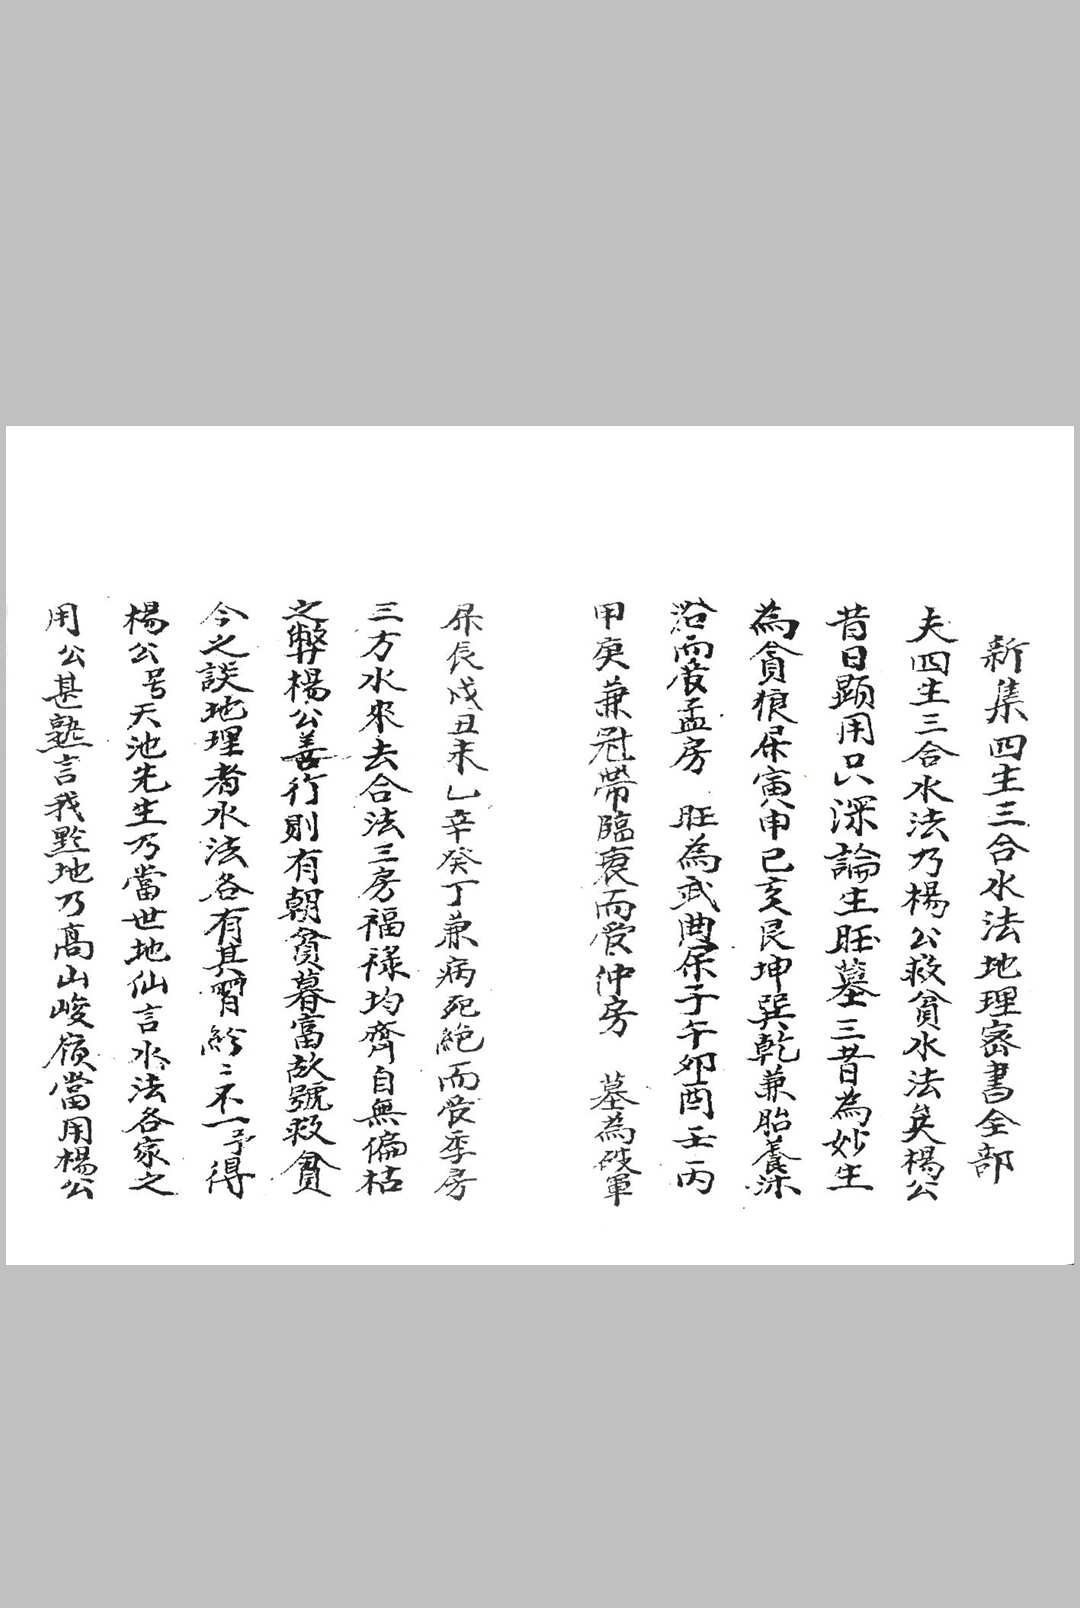 新集四生三合水法地理密書全部
夫四生三合水法乃楊公救貧水法矣楊公
昔日顕用只深論生旺墓三昔為妙生
為貪狼屎寅申巳亥艮坤巽乾兼胎養沐
浴而管孟房 旺為武曲屎子午卯酉壬丙
甲庚兼冠帶臨衰而管仲房 墓為破軍
屎辰戌丑未乙辛癸丁兼病死絕而管季房
三方水來去合法三房福祿均齊自無偏枯
之弊楊公善行則有朝貧暮富故號救貧
今之談地理者水法各有其 紛〻不一予得
楊公号天池先生乃當世地仙言水法各家之
用公甚熟言我點地乃高山峻嶺當用楊公